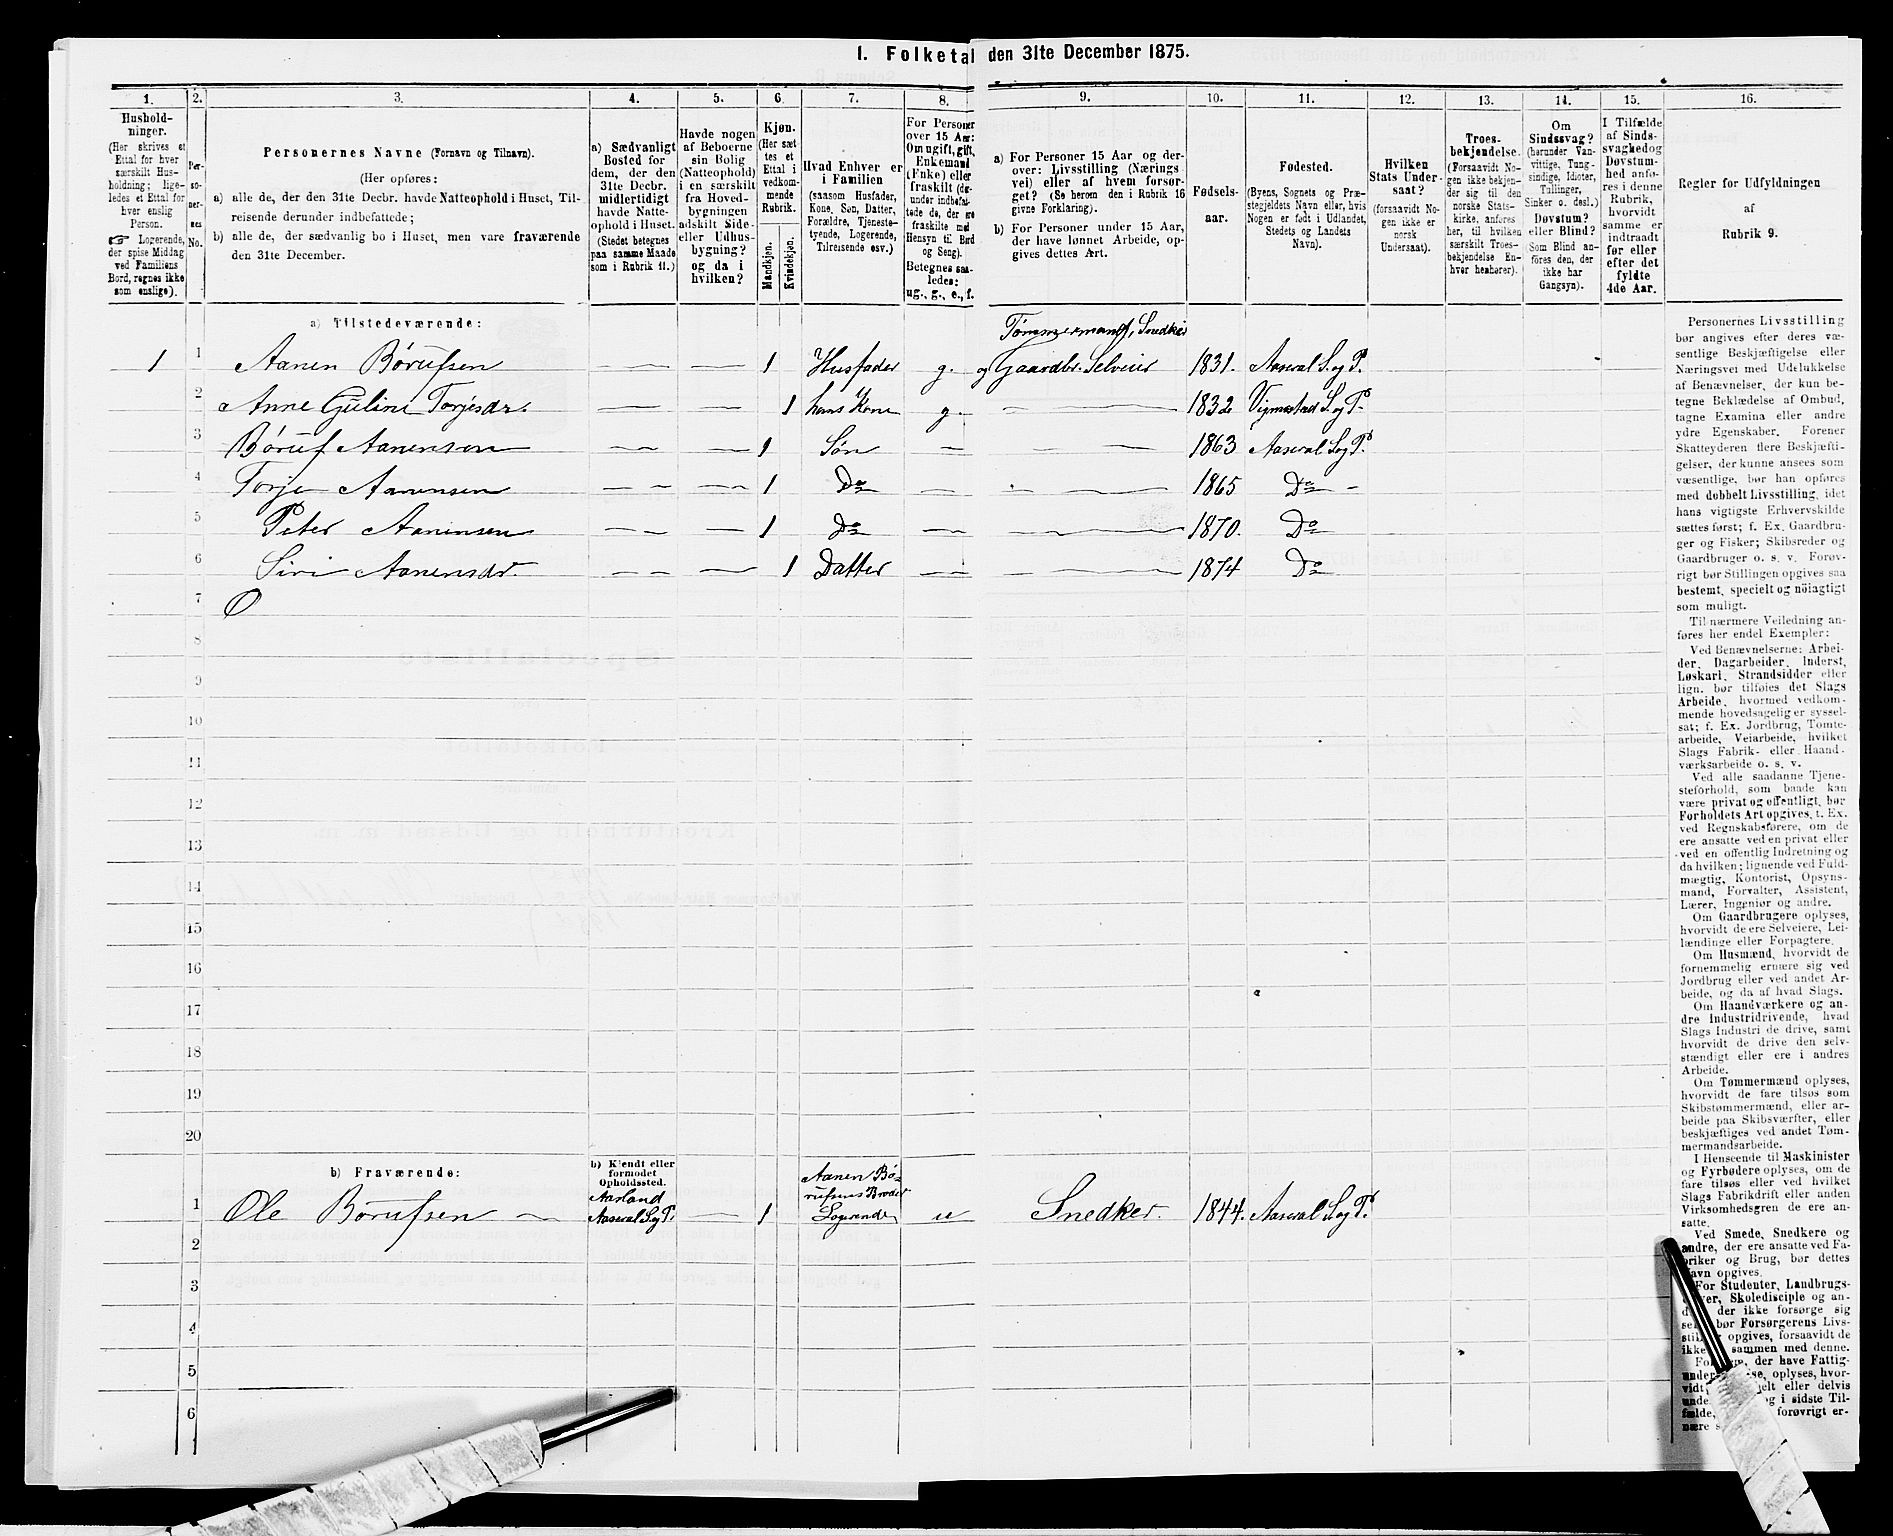 1. Folketal den 31te December 1875.
1. 2. 3. 4. 5. 6. 7. 8. 9. 10. 11. 12. 13. 14. 15. 16.
Hushold-
ninger.
(Her skrives et
Ettal for hver
særskilt Hus-
holdning; lige-
ledes et Ettal for
hver enslig
Person.
☞ Logerende,
der spise Middag
ved Familiens
Bord, regnes ikke
som enslige).
Per-
so-
ner-
nes
No.
Personernes Navne (Fornavn og Tilnavn).
(Her opføres:
a) alle de, der den 31te Decbr. havde Natteophold i Huset, Til-
reisende derunder indbefattede;
b) alle de, der sædvanlig bo i Huset, men vare fraværende
den 31te December.
a) Sædvanligt
Bosted for
dem, der den
31te Decbr.
midlertidigt
havde Natte-
ophold i Huset.
(Stedet betegnes
paa samme Maade
som i Rubrik 11.)
Havde nogen
af Beboerne
sin Bolig
(Natteophold)
i en særskilt
fra Hoved-
bygningen
adskilt Side-
eller Udhus-
bygning?
og da i
hvilken?
Kjøn.
(Her sæt
tes et
Ettal i
vedkom-
mende
Rubrik.
Mandkjøn.
Kvindekjøn.
Hvad Enhver er
i Familien
(saasom Husfader,
Kone, Søn, Datter,
Forældre, Tjeneste-
tyende, Logerende,
Tilreisende osv.)
For Personer
over 15 Aar:
Om ugift, gift,
Enkemand
(Enke) eller
fraskilt (der-
under indbefat-
tede de, der ere
fraskilte med
Hensyn til Bord
og Seng).
Betegnes saa-
ledes:
ug., g., e., f.
a) For Personer 15 Aar og der-
over: Livsstilling (Nærings
vei) eller af hvem forsør-
get? (Se herom den i Rubrik 16
givne Forklaring).
b) For Personer under 15 Aar,
der have lønnet Arbeide, op-
gives dettes Art.
Fødsels-
aar.
Fødested.
(Byens, Sognets og Præ-
stegjeldets Navn eller, hvis
Nogen er født i Udlandet,
Stedets og Landets
Navn).
Hvilken
Stats Under-
saat?
(forsaavidt No-
gen ikke er
norsk
Undersaat).
Troes-
bekjendelse.
(Forsaavidt No-
gen ikke bekjen-
der sig til den
norske Stats-
kirke, anføres
her, til hvilken
særskilt Troes-
bekjendelse En-
hver henhører).
Om
Sindssvag?
(herunder Van-
vittige, Tung-
sindige, Idioter,
Tullinger,
Sinker o. desl.)
Døvstum?
eller Blind?
(Som Blind an-
føres den, der
ikke har
Gangsyn).
I Tilfælde
af Sinds-
svaghed og
Døvstum-
hed anfø-
res i denne
Rubrik,
hvorvidt
samme er
indtraadt
før eller
efter det
fyldte
4de Aar.
Regler for Udfyldningen
af
Rubrik 9.
a) Tilstedeværende:
Tømmermand, Snedker
1 1 Aanen Børufsen — — 1 Husfader g. og Gaardbr. Selveier 1831. Aaseral S. og P.
2 Anne Guline Torjesdr. — — 1 hans Kone g. — 1832 Vigmostad S. og P.
3 Børuf Aanensen — — 1 Søn — — 1863 Aaseral S. og P.
4 Torje Aanensen — — 1 Do — — 1865 Do —
5 Peter Aanensen — — 1 Do — — 1870. Do
6 Siri Aanensdr. — — 1 Datter — — 1874 Do
7
8
9
10
11
12
13
14
15
16
17
18
19
20
b) Fraværende:
b) Kjendt eller
formodet
Opholdssted.
1 Ole Børufsen — Aarland
Aaseral S. og P. — 1 Aanen Bø-
rufsens Broder
Logerende u Snedker. 1844. Aaseral S. og P.
2
3
4
5
6
Personernes Livsstilling
bør angives efter deres væ-
sentlige Beskjæftigelse eller
Næringsvei med Udelukkelse
af Benævnelser, der kun be-
tegne Beklædelse af Ombud,
tagne Examina eller andre
ydre Egenskaber. Forener
Skatteyderen flere Beskjæfti-
gelser, der kunne ansees som
væsentlige, bør han opføres
med dobbelt Livsstilling, idet
hans vigtigste Erhvervskilde
sættes først; f. Ex. Gaardbru-
ger og Fisker; Skibsreder og
Gaardbruger o. s. v. Forøv-
rigt bør Stillingen opgives saa
bestemt, specielt og nöiagtigt
som muligt.
Til nærmere Veiledning an-
føres her endel Exempler:
Ved Benævnelserne: Arbei-
der, Dagarbeider, Inderst,
Løskarl, Strandsidder eller
lign. bør tilføies det Slags
Arbeide, hvormed vedkom-
mende hovedsagelig er syssel-
sat; f. Ex. Jordbrug, Tomte-
arbeide, Veiarbeide, hvilket
Slags Fabrik- eller Haand-
værksarbeide o. s. v.
Ved alle saadanne Tjene-
steforhold, som baade kan
være privat og offentligt, bør
Forholdets Art opgives, f. Ex.
ved Regnskabsførere, om de
ere ansatte ved en privat eller
ved en offentlig Indretning og
da hvilken; lignende ved Fuld-
mægtig, Kontorist, Opsyns-
mand, Forvalter, Assistent,
Lærer, Ingeniør og andre.
Om Gaardbrugere oplyses,
hvorvidt de ere Selveiere, Lei-
lændinge eller Forpagtere.
Om Husmænd, hvorvidt de
fornemmelig ernære sig ved
Jordbrug eller ved andet Ar-
beide, og da af hvad Slags.
Om Haandværkere og an-
dre Industridrivende, hvad
Slags Industri de drive, samt
hvorvidt de drive den selv-
stændigt eller ere i andres
Arbeide.
Om Tømmermænd oplyses,
hvorvidt de fare tilsøs som
Skibstømmermænd, eller ar-
beide paa Skibsværfter, eller
beskjæftiges ved andet Tøm-
mermandsarbeide.
I Henseende til Maskinister
og Fyrbødere oplyses, om de
fare tilsøs eller ved hvilket
Slags Fabrikdrift eller anden
Virksomhedsgren de ere an-
satte.
Ved Smede, Snedkere og
andre, der ere ansatte ved Fa-
briker og Brug, bør dettes
Navn opgives.
For Studenter, Landbrugs-
elever, Skoledisciple og an-
dre, der ikke forsørge sig
selv, bør Forsørgerens Livs-
stilling opgives, forsaavidt de
ikke bo sammen med denne.
der have Fattig-
oplyses, hvor-
vidt eller delvis
og i sidste Til-
fælde, forøvrigt er-
nære